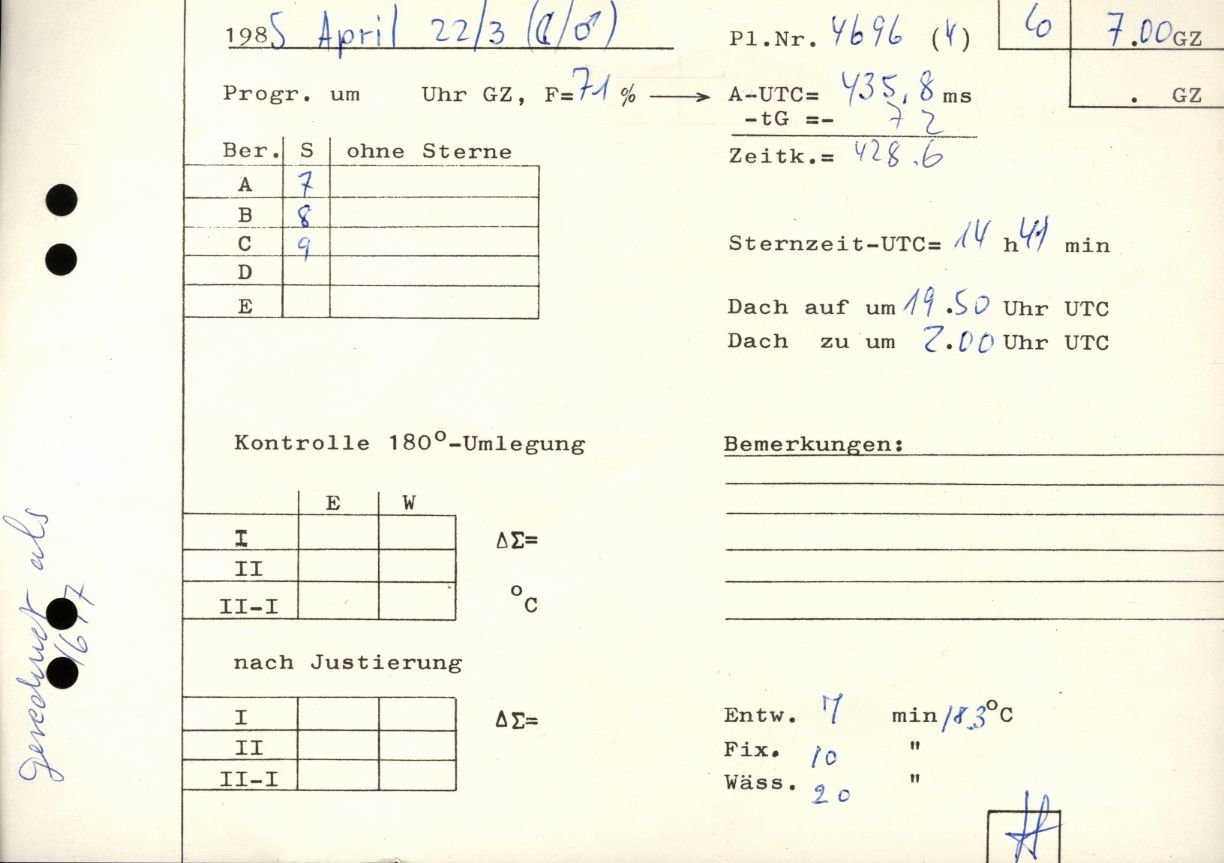 1985 April 22/3 (☾/♂) Pl.Nr. 4696 (4) 6 7.00 GZ
Progr. um Uhr GZ, F=71 % → A-UTC= 435,8 ms . GZ
-tG =- 7 2
Ber. S ohne Sterne Zeitk.= 428.6
A 7
B 8
C 9 Sternzeit-UTC= 14 h 41 min
D
E Dach auf um 19.50 Uhr UTC
Dach zu um 2.00 Uhr UTC
Kontrolle 180°-Umlegung Bemerkungen:
E W
I ΔΣ=
II
II-I °C
nach Justierung
I ΔΣ=
II
II-I
Entw. 7 min/18.3°C
Fix. 10 "
Wäss. 20 "
gerechnet als